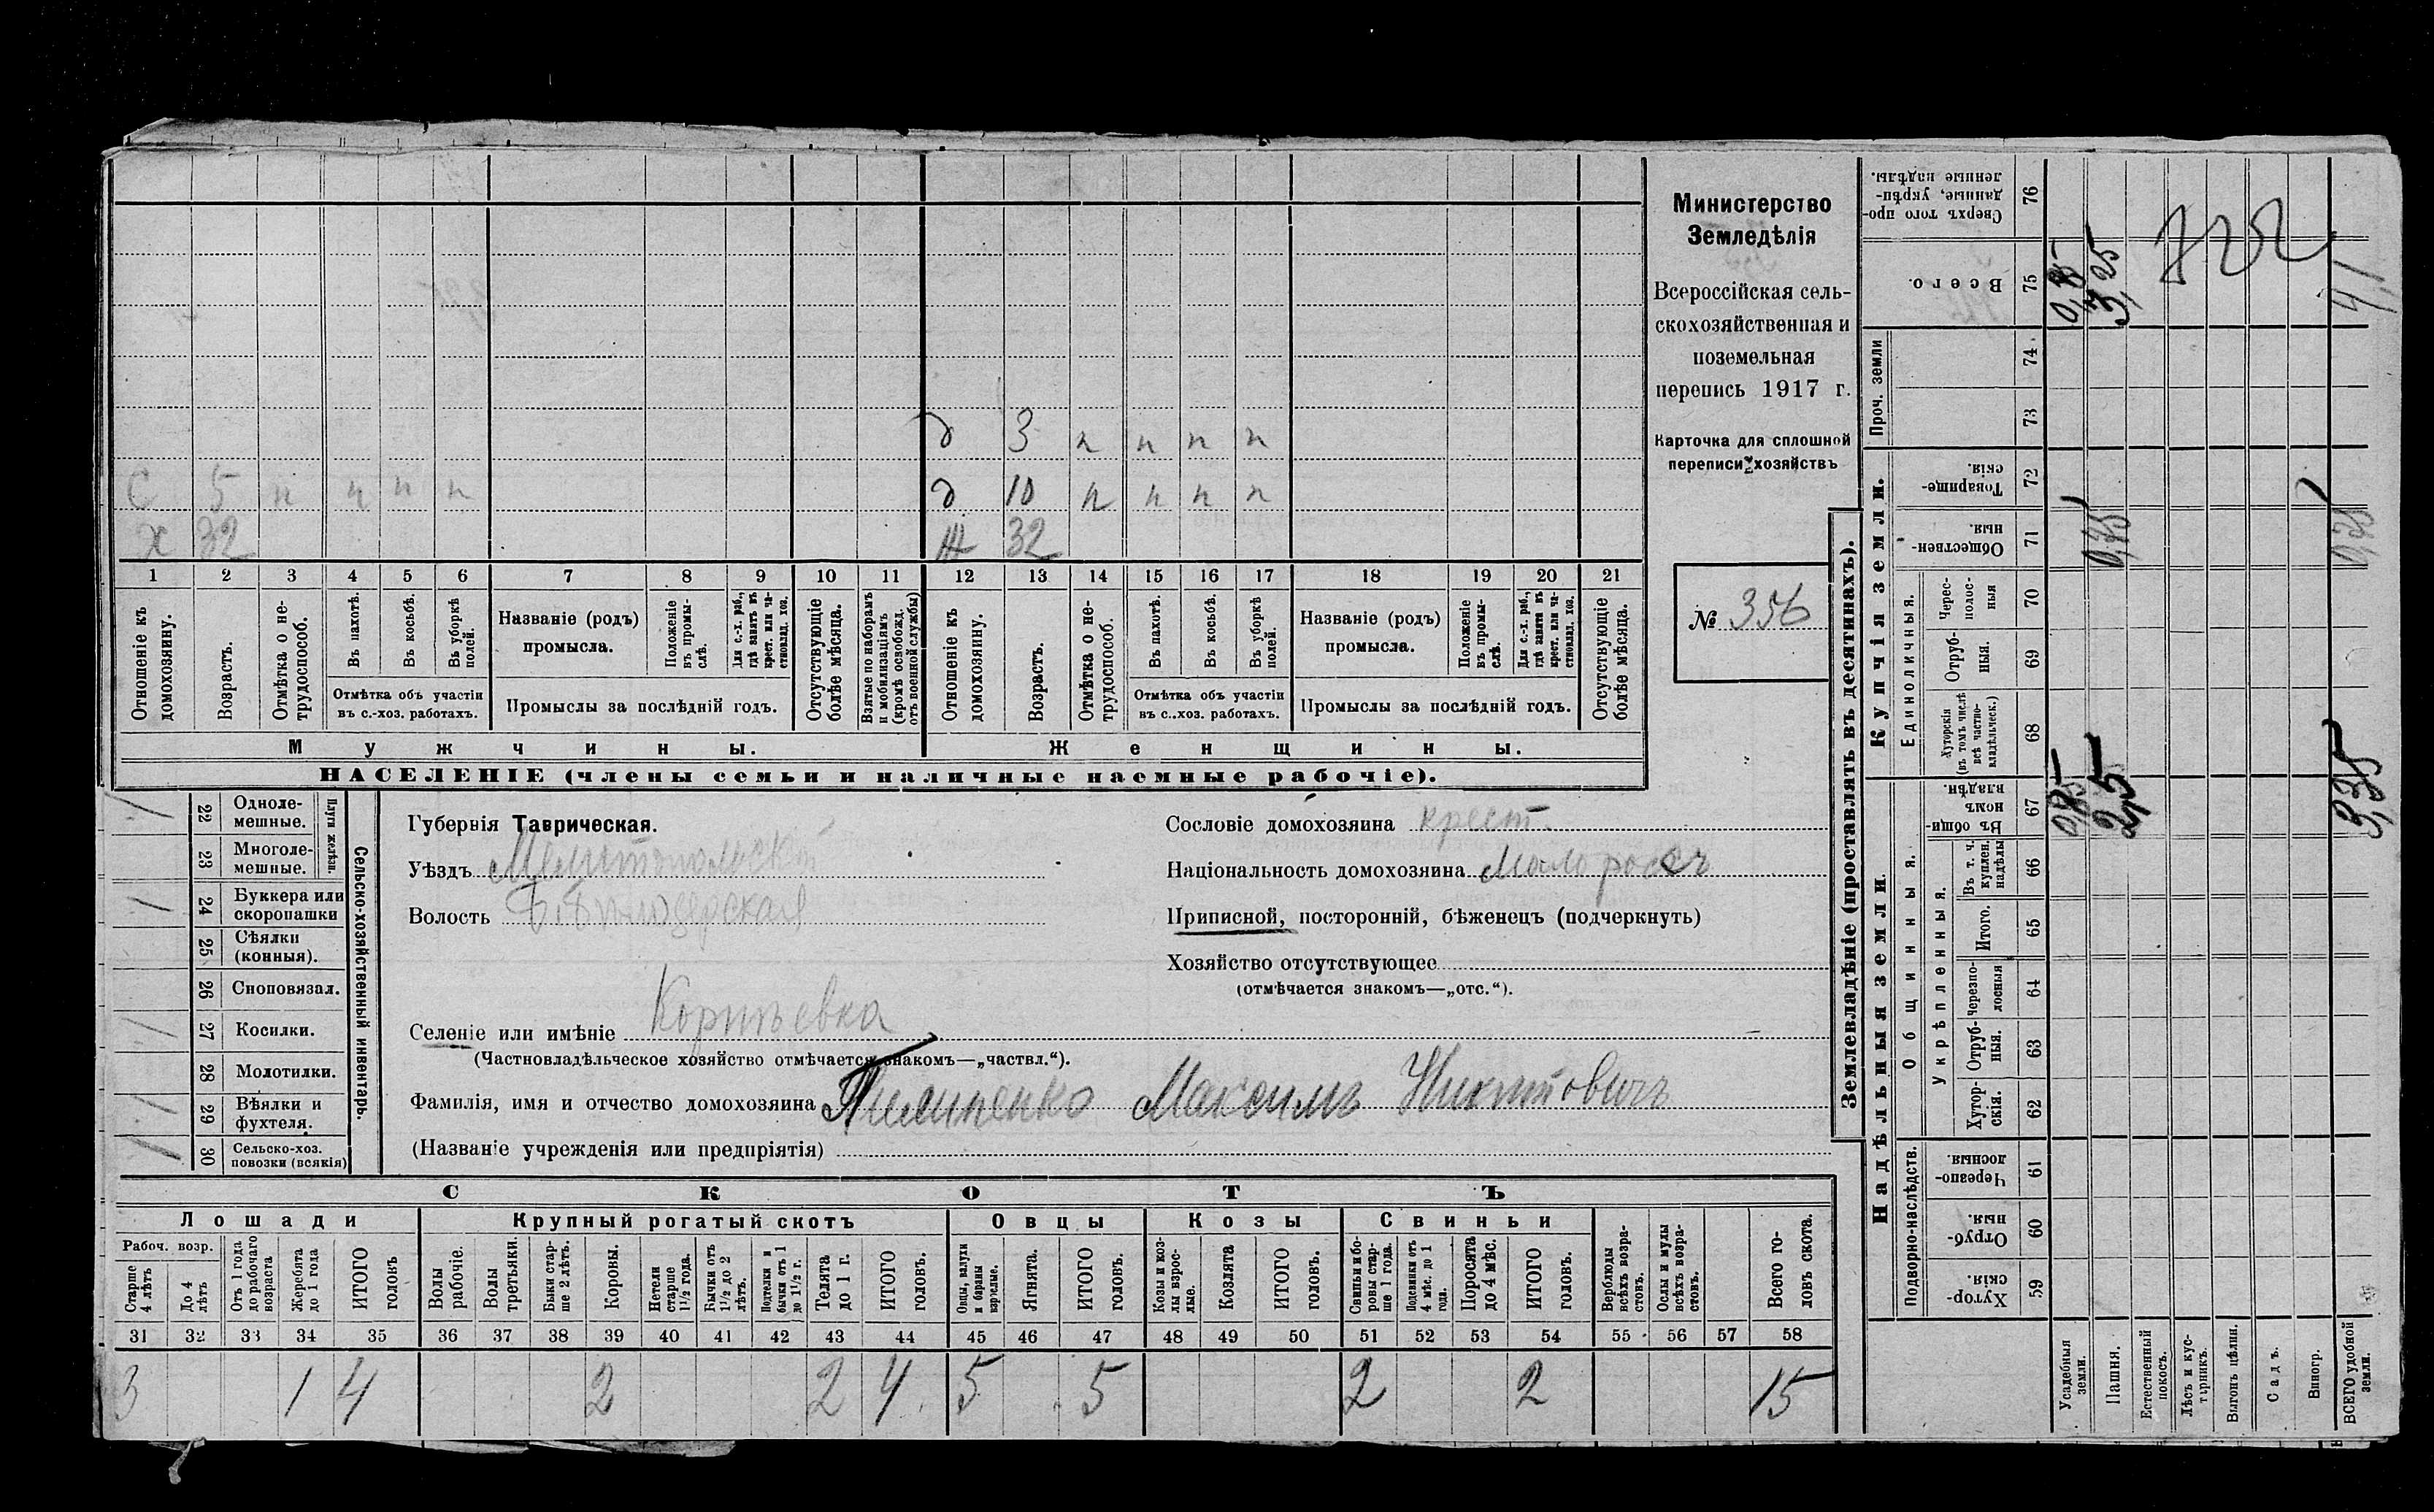 д 3 н н н н
С 5 н н н н д 10 н н н н
х 32 Ж 32
1 2 3 4 5 6 7 8 9 10 11 12 13 14 15 16 17 18 19 20 21
Отношеніе къ домохозяину.
Возрастъ.
Отмѣтка о нетрудоспособ.
Въ пахотѣ.
Въ косьбѣ.
Въ уборкѣ полей.
Отмѣтка объ участіи
въ с.-хоз. работахъ.
Названіе (родъ)
промысла.
Положеніе въ промыслѣ.
Для с.-х. раб., гдѣ занятъ въ крест. или частновлад. хоз.
Промыслы за послѣдній годъ.
Отсутствующіе болѣе мѣсяца.
Взятые по наборамъ и мобилизаціямъ (кромѣ освобожд. отъ военной службы)
Отношеніе къ домохозяину.
Возрастъ.
Отмѣтка о нетрудоспособ.
Въ пахотѣ.
Въ косьбѣ.
Въ уборкѣ полей.
Отмѣтка объ участіи
въ с.-хоз. работахъ.
Названіе (родъ)
промысла.
Положеніе въ промыслѣ.
Для с.-х. раб., гдѣ занята въ крест. или частновлад. хоз.
Промыслы за послѣдній годъ.
Отсутствующіе болѣе мѣсяца.
Мужчины. Женщины.
НАСЕЛЕНІЕ (члены семьи и наличные наемные рабочіе).
Министерство
Земледѣлія
Всероссійская сель-
скохозяйственная и
поземельная
перепись 1917 г.
Карточка для сплошной
переписи хозяйствъ
№ 356
Сельско-хозяйственный инвентарь.
Плуги желѣзн.
/ 22 Одноле-
мешные.
23 Многоле-
мешные.
/ 24 Буккера или
скоропашки
25 Сѣялки
(конныя).
26 Сноповязал.
/ 27 Косилки.
28 Молотилки.
/ 29 Вѣялки и
фухтеля.
/ 30 Сельско-хоз.
повозки (всякія)
Губернія Таврическая.
Уѣздъ Мелитопольскій
Волость
Селеніе или имѣніе
(Частновладѣльческое хозяйство отмѣчается знакомъ—„частвл.“).
Фамилія, имя и отчество домохозяина Пилипенко Максимъ Никитовичъ
(Названіе учрежденія или предпріятія)
Сословіе домохозяина крест.
Національность домохозяина Малороссъ
Приписной, посторонній, бѣженецъ (подчеркнуть)
Хозяйство отсутствующее
(отмѣчается знакомъ—„отс.“).
СКОТЪ
Лошади Крупный рогатый скотъ Овцы Козы Свиньи
Рабоч. возр.
Старше 4 лѣтъ
До 4 лѣтъ
Отъ 1 года до рабочаго возраста
Жеребята до 1 года
ИТОГО головъ
Волы рабочіе.
Волы третьяки.
Быки старше 2 лѣтъ.
Коровы.
Нетели старше 1½ года.
Бычки отъ 1½ до 2 лѣтъ.
Подтелки и бычки отъ 1 до 1½ г.
Телята до 1 г.
ИТОГО головъ.
Овцы, валухи и бараны взрослые.
Ягнята.
ИТОГО головъ.
Козы и козлы взрослые.
Козлята
ИТОГО головъ.
Свиньи боровы старше 1 года.
Подсвинки отъ 4 мѣс. до 1 года.
Поросята до 4 мѣс.
ИТОГО головъ.
Верблюды всѣхъ возрастовъ.
Ослы и мулы всѣхъ возрастовъ.
Всего головъ скота.
31 32 33 34 35 36 37 38 39 40 41 42 43 44 45 46 47 48 49 50 51 52 53 54 55 56 57 58
3 1 4 2 2 4 5 5 2 2 15
Землевладѣніе (проставлять въ десятинахъ).
Сверхъ того проданные, укрѣпленные надѣлы. 76
722
Всего. 75 0,85 3,25 4,1
Проч. земли 74
73
Купчія земли.
Товарищескія. 72
Общественныя. 71 0,75 0,75
Единоличныя.
Чересполосныя 70
Отрубныя. 69
Хуторскія (въ томъ числѣ всѣ частновладѣльческ.) 68
Надѣльныя земли
Общинныя.
Въ общинномъ владѣн. 67 0,85 2,5 3,35
Укрѣпленныя.
Въ т. ч. куплен. надѣлы 66
Итого. 65
Черезполосныя 64
Отрубныя. 63
Хуторскія. 62
Подворно-наслѣдств.
Черезполосныя. 61
Отрубныя. 60
Хуторскія. 59
Усадебныя земли.
Пашня.
Естественный покосъ.
Лѣсъ и кустарникъ.
Выгонъ цѣлин.
Садъ.
Виногр.
ВСЕГО удобной земли.